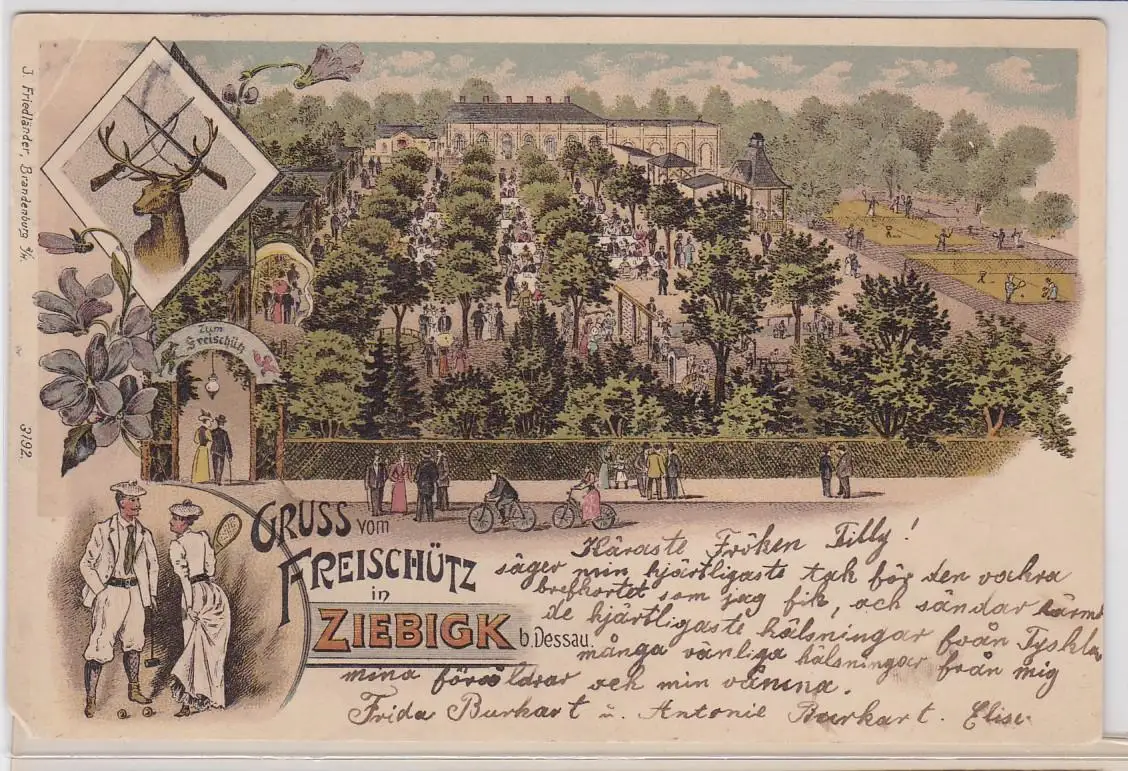 J. Friedländer, Brandenburg a/H.
3192.
Zum
Freischütz
GRUSS vom
FREISCHÜTZ
in
ZIEBIGK b. Dessau.
Käraste Fröken Tilly!
säger min hjärtligaste tak för den vackra
brefkortet som jag fik, och sändar härme
de hjärtligaste hälsningar från Tyskla
många vänliga hälsningar från mig
mina föräldrar och min vänina.
Frida Burkart u. Antonie Burkart. Elise